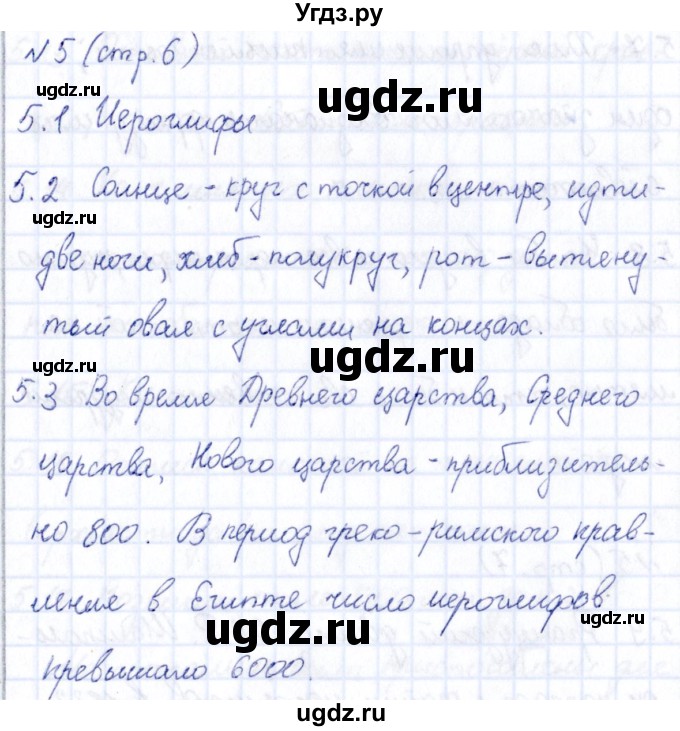 Угдз.ру
№5 (стр. 6)
ugdz.ru
5.1 Иероглифы
ugdz.ru
5.2 Солнце - круг с точкой в центре, идти -
ugdz.ru
две ноги, хлеб - полукруг, рот - вытяну-
ugdz.ru
тый овал с углами на концах.
ugdz.ru
ugdz.ru
5.3 Во время Древнего царства, Среднего
ugdz.ru
царства, Нового царства - приблизитель-
ugdz.ru
но 800. В период греко-римского прав-
ления в Египте число иероглифов
ugdz.ru
ugdz.ru
превышало 6000.
ugdz.ru
ugdz.ru